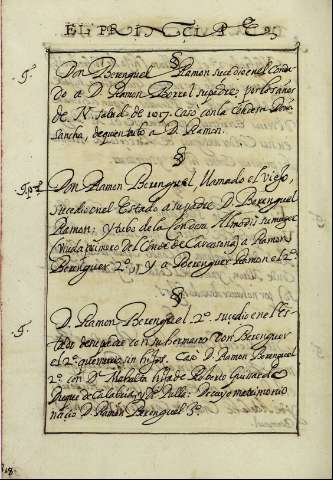 EL PRINCIPE
§
Don Berenguel Ramon sucedio en el Conda-
do a D. Ramon Borrel su padre; por los años
de Nr̃a salud de 1017. Casó con la Condesa Doña
Sancha, de quien tubo a D. Ramon.
§
Don Ramon Berenguel llamado el viejo,
sucedio en el Estado a su padre D. Berenguel
Ramon; y tubo de la Condesa Almodis su muger
(Viuda primero del Conde de Carcasona) a Ramon
Berenguer 2º y a Berenguer Ramon el 2º
§
D. Ramon Berenguel 2º sucedio en el es-
tado de su padre con su hermano Don Berenguer
el 2º que murio sin hijos. Casó D. Ramon Berenguel
2º con Dª Mahulta hija de Roberto Guisardo
Duque de Calabria, y de Pulla: De cuyo matrimonio
nacio D. Ramon Berenguel 3º